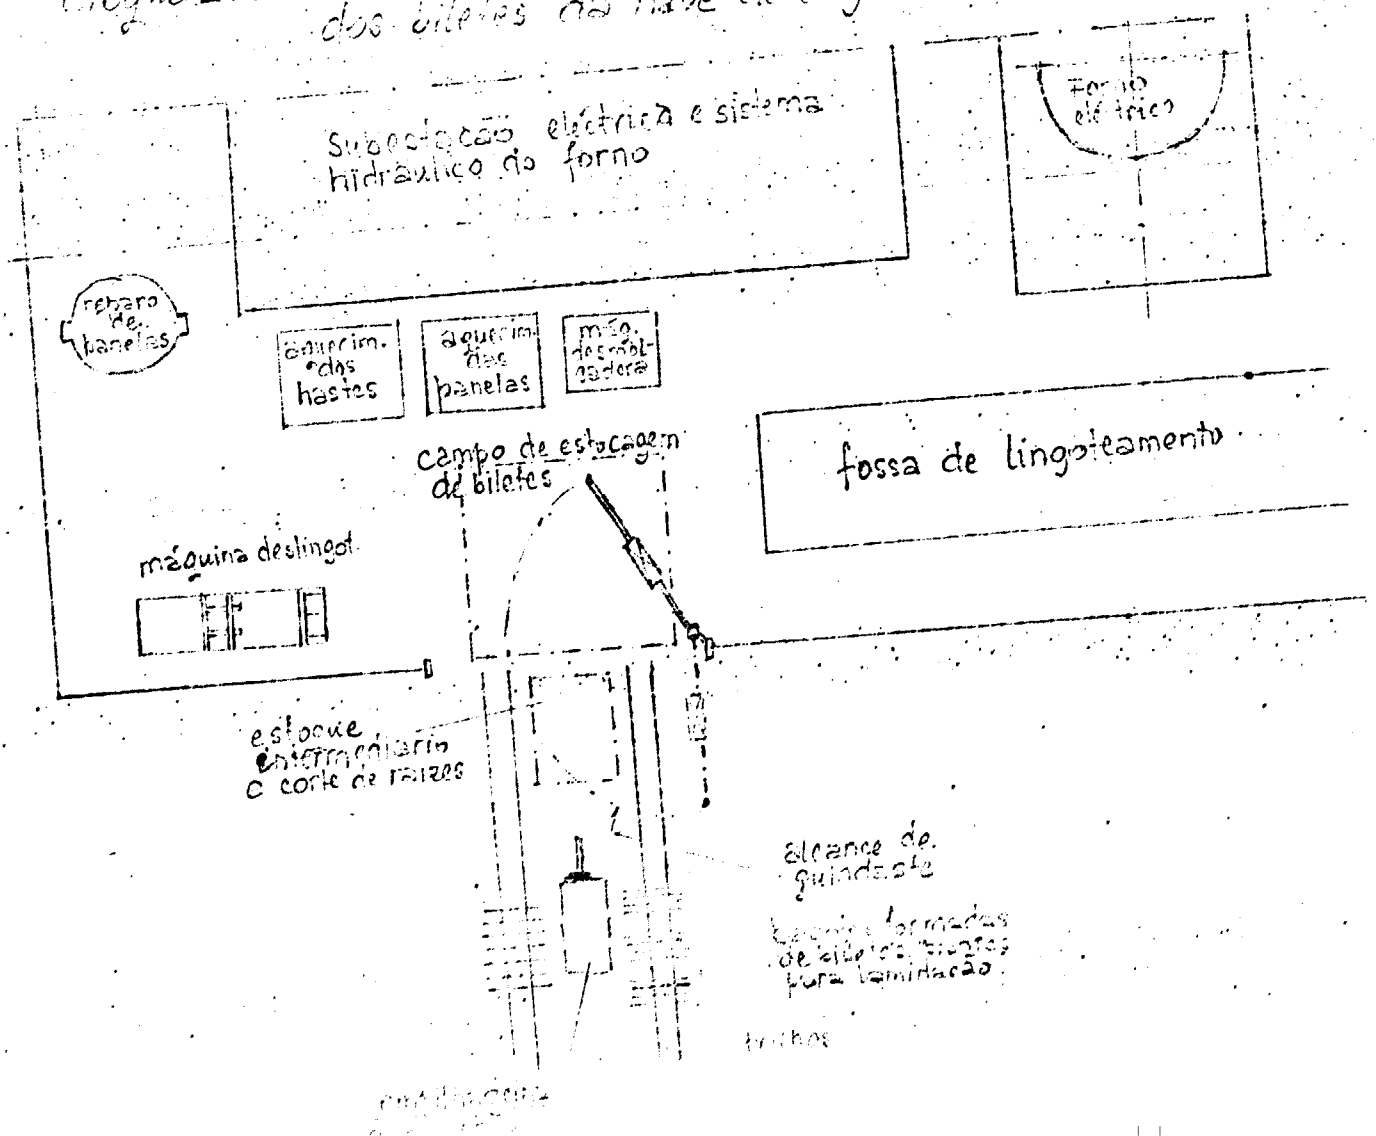 dos biletes da nave de
Subestação eléctrica e sistema
hidráulico do forno
Forno
eléctrico
reparo
de
panelas
aquecim.
dos
hastes
aquecim.
das
panelas
máq.
desmol-
dadora
campo de estocagem
de biletes
fossa de lingoteamento
máquina deslingot.
estoque
intermediario
e corte de raizes
alcance de
guindaste
formadas
de biletes prontos
para laminação
trilhos